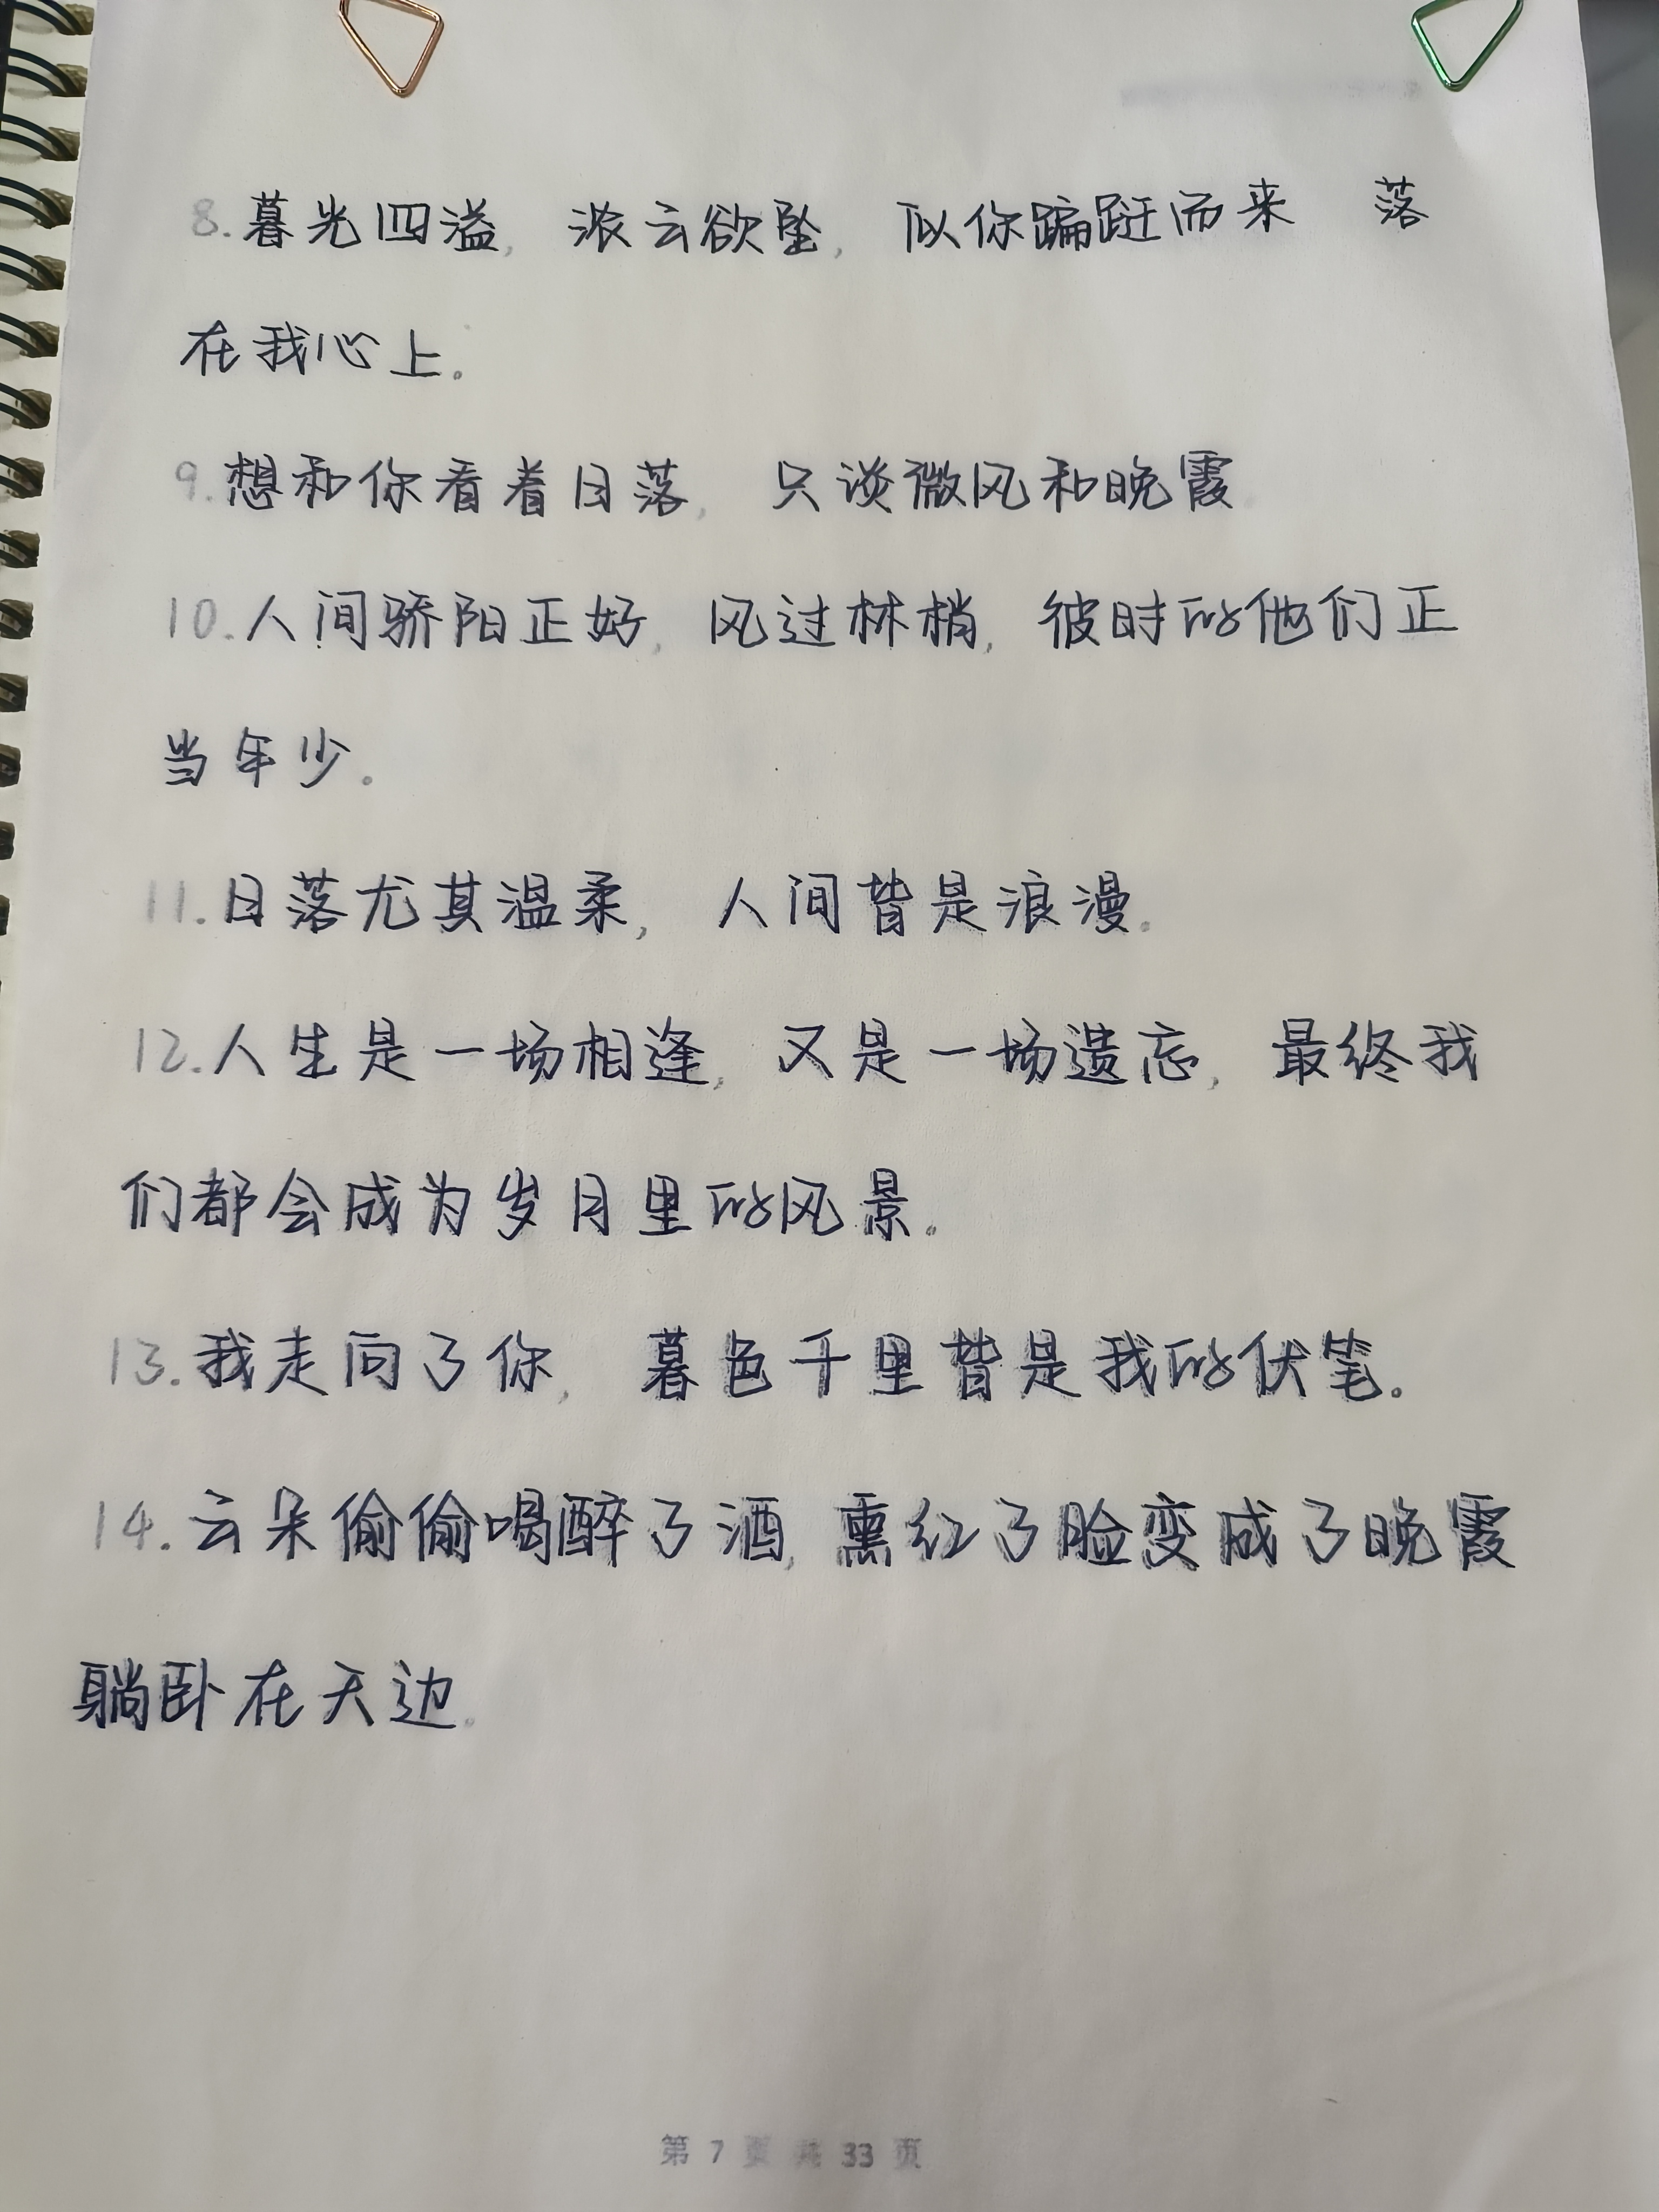 8.暮光四溢,浓云欲坠,似你蹁跹而来 落
在我心上。
9.想和你看着日落,只谈微风和晚霞
10.人间骄阳正好,风过林梢,彼时的他们正
当年少。
11.日落尤其温柔,人间皆是浪漫。
12.人生是一场相逢,又是一场遗忘,最终我
们都会成为岁月里的风景。
13.我走向了你,暮色千里皆是我的伏笔。
14.云朵偷偷喝醉了酒,熏红了脸变成了晚霞
躺卧在天边。
第 7 页 共 33 页